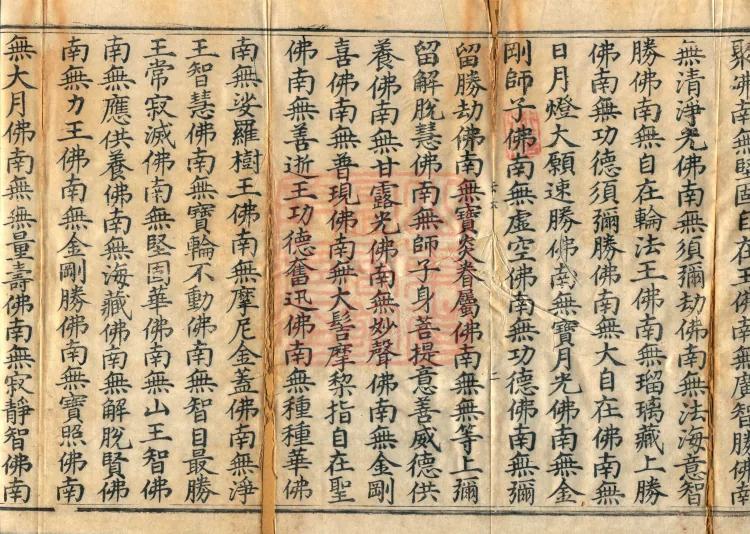 聚佛南無堅固自在王佛南無廣智勝佛南
無清淨光佛南無須彌劫佛南無法海意智
勝佛南無自在輪法王佛南無瑠璃藏上勝
佛南無功德須彌勝佛南無大自在佛南無
日月燈大願速勝佛南無寶月光佛南無金
剛師子佛南無虛空佛南無功德佛南無彌
留勝劫佛南無寶炎眷屬佛南無無等上彌
留解脫慧佛南無師子身菩提意善威德供
養佛南無甘露光佛南無妙聲佛南無金剛
喜佛南無普現佛南無大髻摩棃指自在聖
佛南無善逝王功德奮迅佛南無種種華佛
南無娑羅樹王佛南無摩尼金蓋佛南無淨
王智慧佛南無寶輪不動佛南無智目最勝
王常寂滅佛南無堅固華佛南無山王智佛
南無應供養佛南無海藏佛南無解脫賢佛
南無力王佛南無金剛勝佛南無寶照佛南
無大月佛南無無量壽佛南無寂靜智佛南